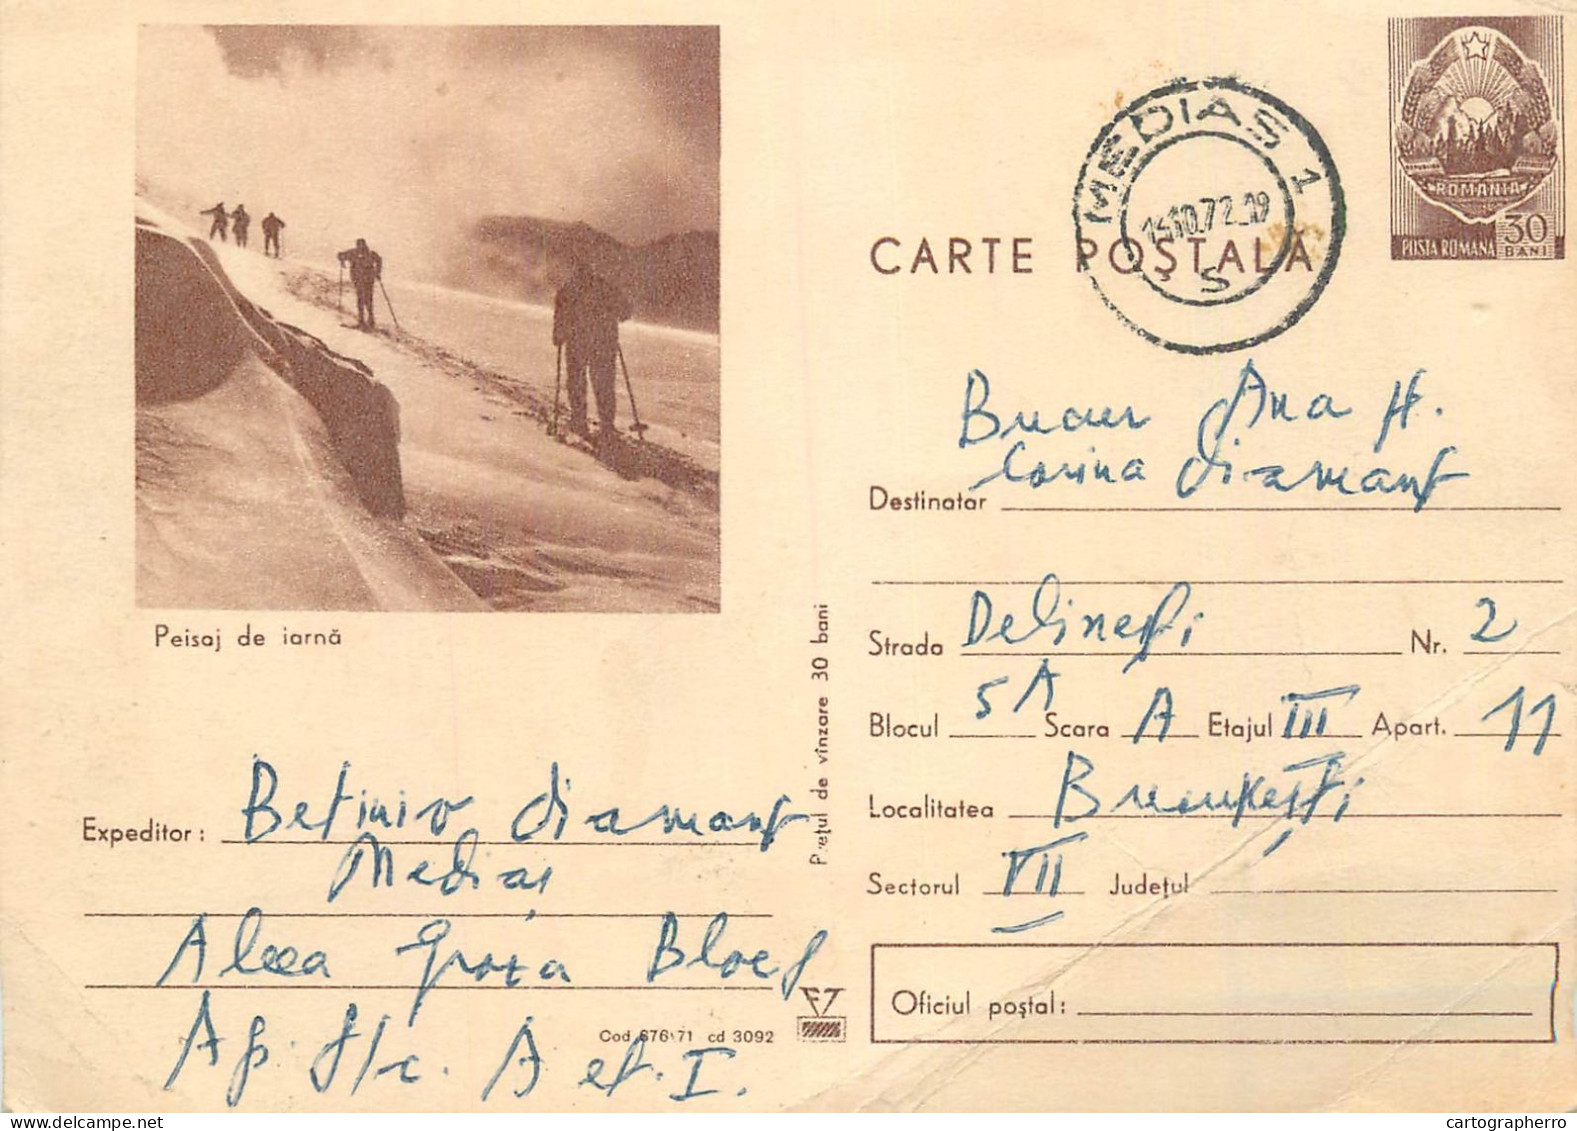 Peisaj de iarnă
Expeditor: Betiniv Diamant
Mediaș
Aleea Groza Bloc
Ap. sc. A et. I.
Cod 676/71 cd 3092
Prețul de vînzare 30 bani
CARTE POȘTALĂ
MEDIAS 1
10.72.19
S
ROMANIA
POSTA ROMANA
30
BANI
Ana H.
Corina Diamant
Destinatar
Strada Delinești Nr. 2
Blocul 5A Scara A Etajul III Apart. 11
Localitatea București
Sectorul VII Județul
Oficiul poștal:
cartographerro